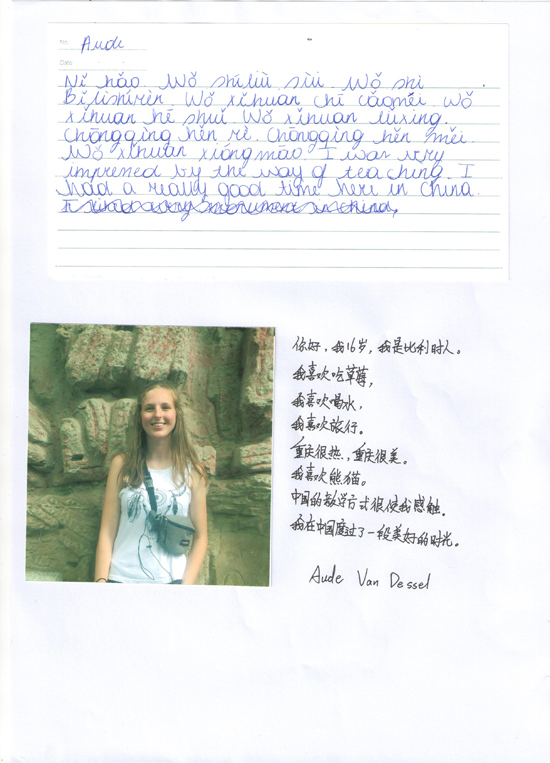 No:
Aude
Date
Nǐ hǎo Wǒ shíliù suì. Wǒ shì
Bǐlìshírén. Wǒ xǐhuan chī cǎoméi. Wǒ
xǐhuan hē shuǐ. Wǒ xǐhuan lǚxíng.
Chóngqìng hěn rè. Chóngqìng hěn měi.
Wǒ xǐhuan xióngmāo. I was very
impressed by the way of teaching. I
had a really good time here in China.
你好，我16岁，我是比利时人。
我喜欢吃草莓，
我喜欢喝水，
我喜欢旅行。
重庆很热，重庆很美。
我喜欢熊猫。
中国的教学方式很使我感触。
我在中国度过了一段美好的时光。
Aude Van Dessel